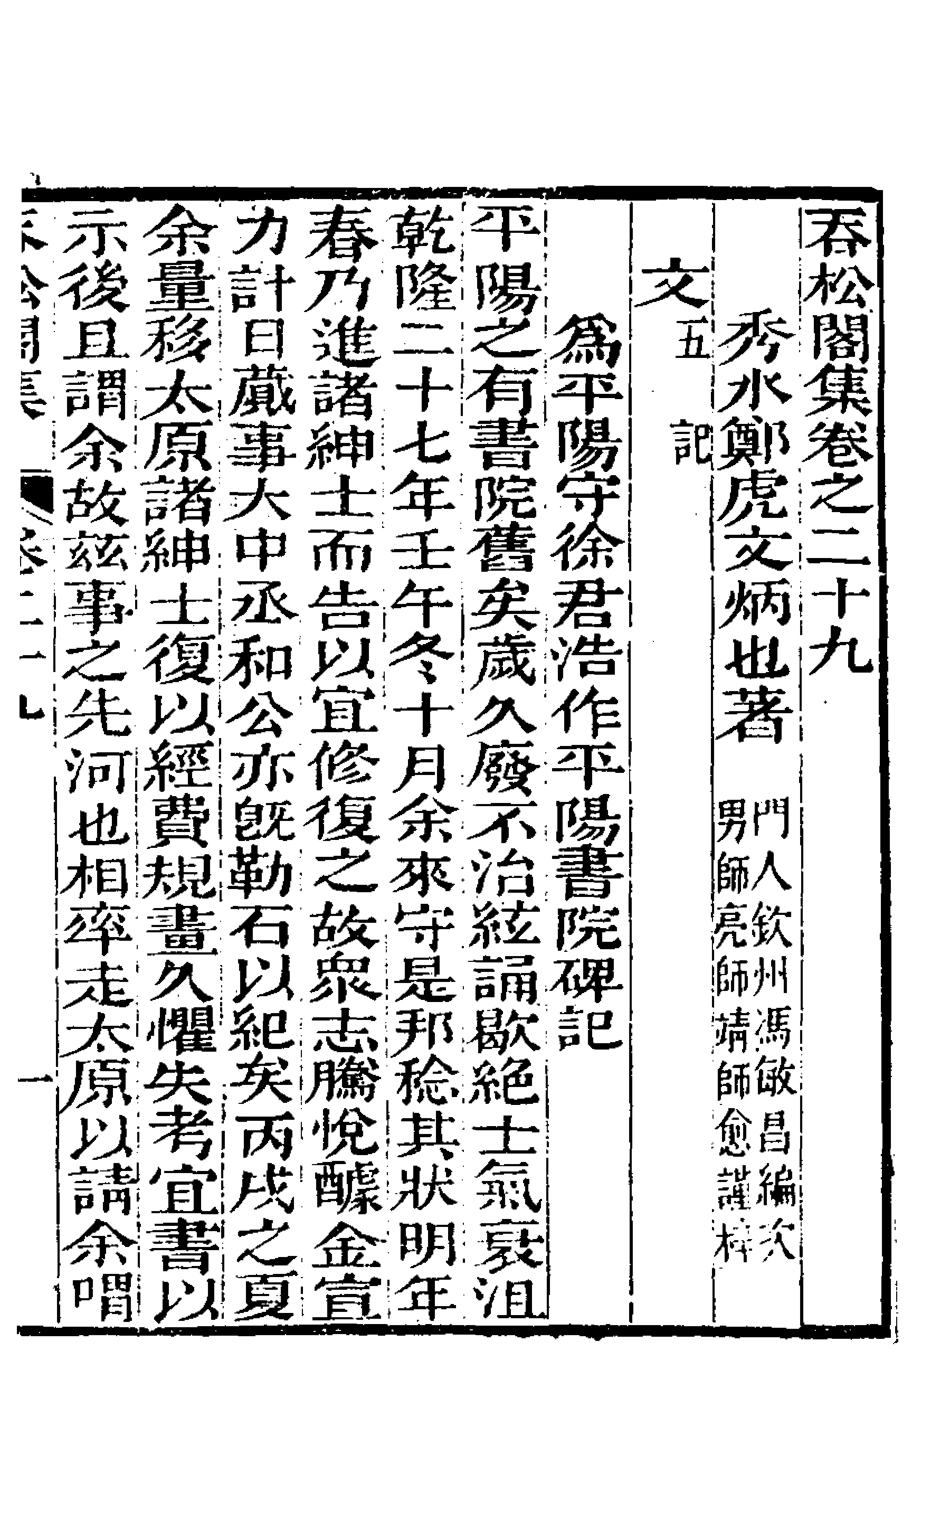 吞松閣集卷之二十九
秀水鄭虎文炳也著
門人欽州馮敏昌編次
男師亮師靖師愈謹梓
文五 記
爲平陽守徐君浩作平陽書院碑記
平陽之有書院舊矣歲久廢不治絃誦歇絕士氣衰沮
乾隆二十七年壬午冬十月余來守是邦稔其狀明年
春乃進諸紳士而告以宜修復之故衆志騰悅醵金宣
力計日蕆事大中丞和公亦旣勒石以紀矣丙戌之夏
余量移太原諸紳士復以經費規畫久懼失考宜書以
示後且謂余故茲事之先河也相率走太原以請余喟
吞松閣集 卷二十九 一